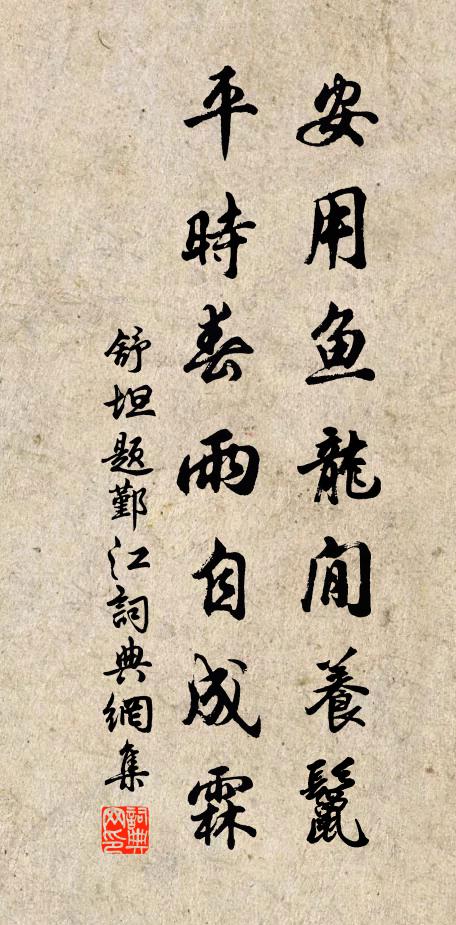 安用鱼龍閒養鬣
平時春雨自成霖
舒坦題鄞江詞典網集
詞典網印